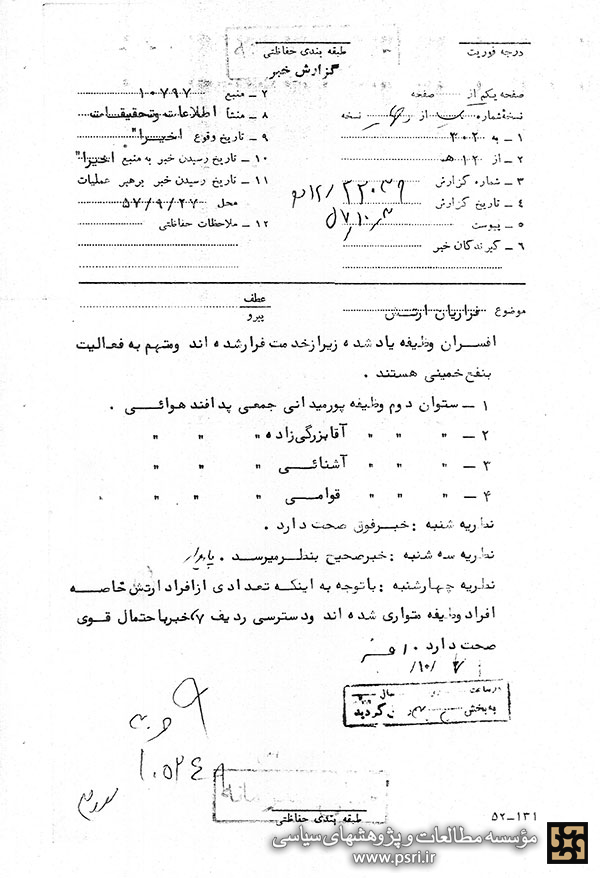 درجه فوریت
طبقه بندی حفاظتی
گزارش خبر
صفحه یکم از صفحه
نسخه شماره از نسخه
۱ ـ به ۳۰۲
۲ ـ از ۱۲ هـ
۳ ـ شماره گزارش
۴ ـ تاریخ گزارش
۵ ـ پیوست
۶ ـ گیرندگان خبر
۷ ـ منبع ۱۰۷۹۷
۸ ـ منشأ اطلاعات و تحقیقات
۹ ـ تاریخ وقوع اخیرا"
۱۰ ـ تاریخ رسیدن خبر به منبع اخیرا"
۱۱ ـ تاریخ رسیدن خبر برهبر عملیات
محل ۵۷/۹/۲۷
۱۲ ـ ملاحظات حفاظتی
موضوع فراریان ارتش
عطف
پیرو
افسران وظیفه یاد شده زیر از خدمت فرار شده اند و متهم به فعالیت
بنفع خمینی هستند .
۱ ـ ستوان دوم وظیفه پورمیدانی جمعی پدافند هوائی .
۲ ـ " " " آقابزرگی زاده " " "
۳ ـ " " " آشنائی " " "
۴ ـ " " " قوامی " " "
نظریه شنبه : خبر فوق صحت دارد .
نظریه سه شنبه : خبر صحیح بنظر میرسد . پایدار
نظریه چهارشنبه : با توجه به اینکه تعدادی از افراد ارتش خاصه
افراد وظیفه متواری شده اند و دسترسی ردیف ۷ خبر باحتمال قوی
صحت دارد
در ساعت
به بخش گردید
طبقه بندی حفاظتی
۵۲ـ۱۳۱
مؤسسه مطالعات و پژوهشهای سیاسی
www.psri.ir